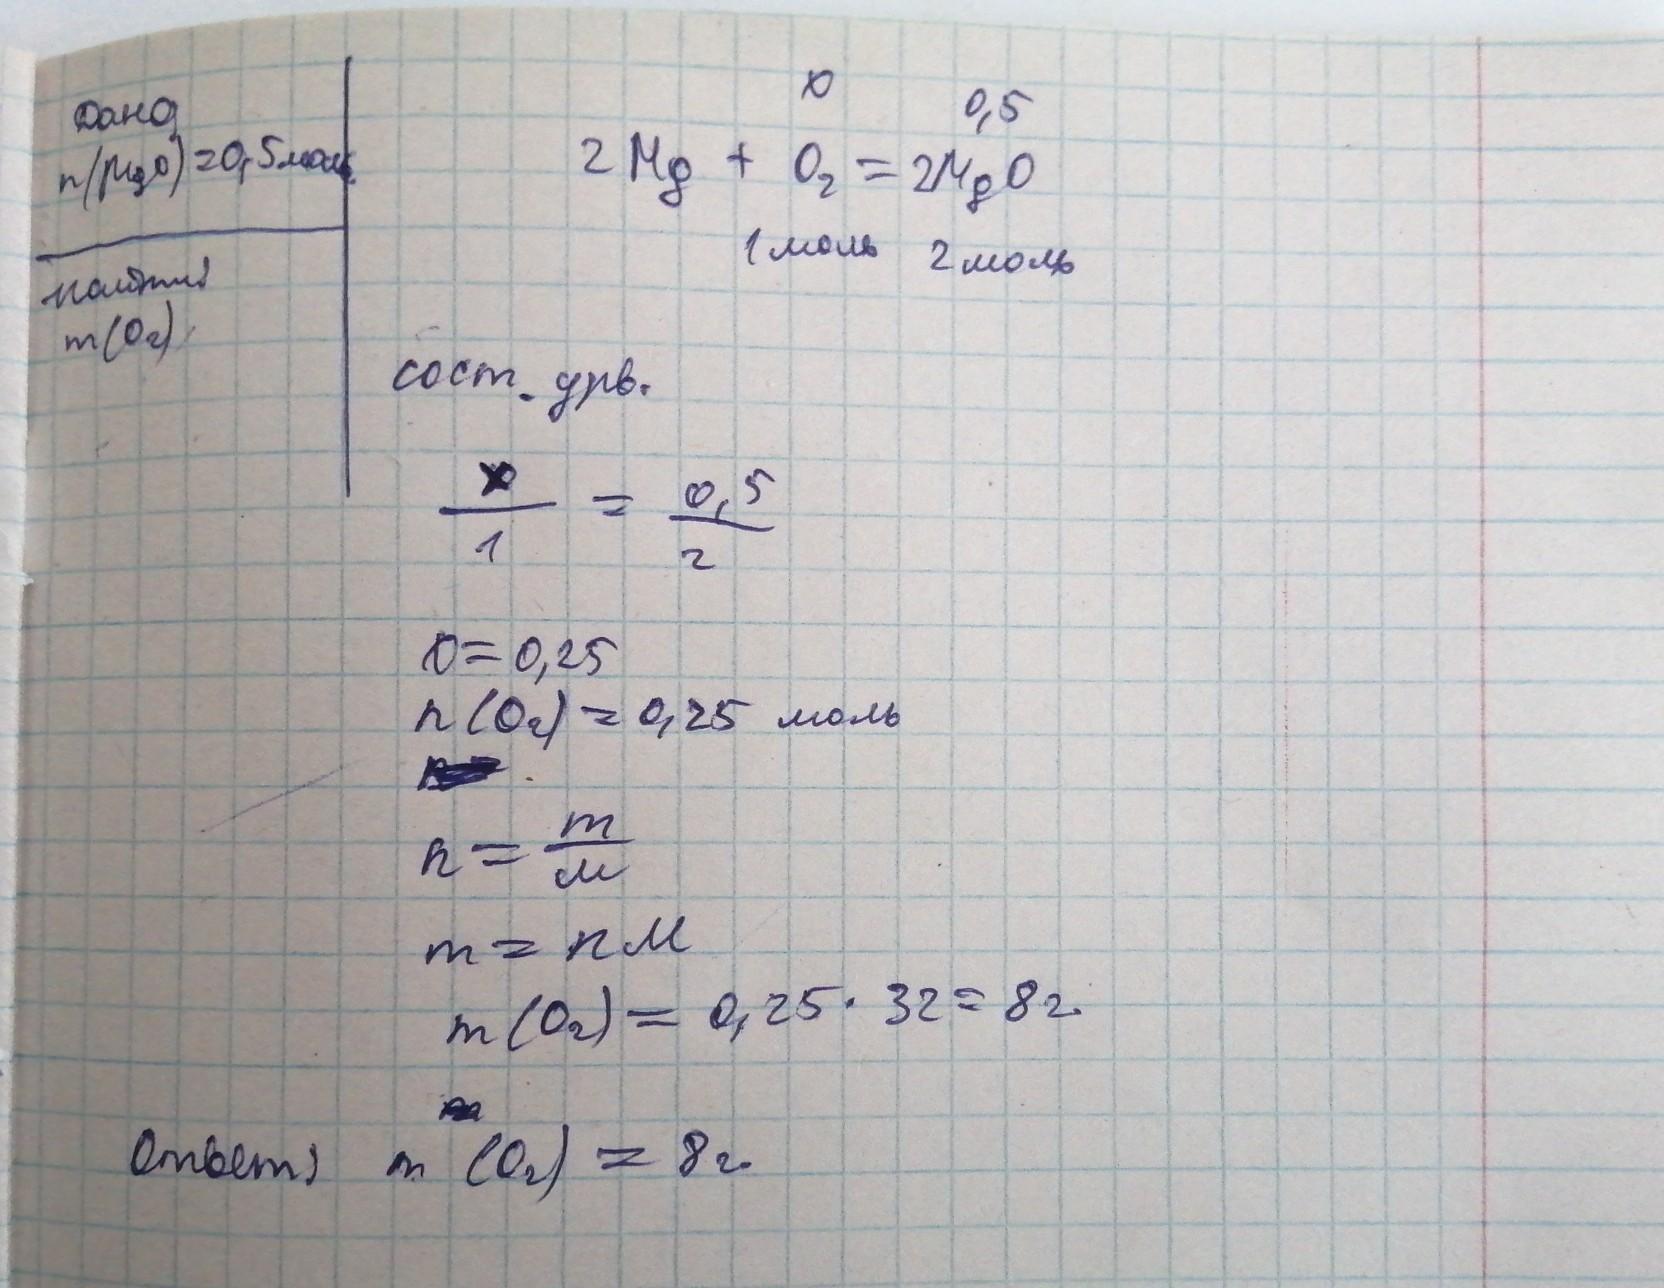 Дано:
n(MgO)=0,5моль
Найти:
m(O2)
x 0,5
2Mg + O2 = 2MgO
1моль 2моль
сост. урв.
x/1 = 0,5/2
x=0,25
n(O2)=0,25 моль
n=m/M
m=nM
m(O2)=0,25·32=8г.
Ответ: m(O2)=8г.